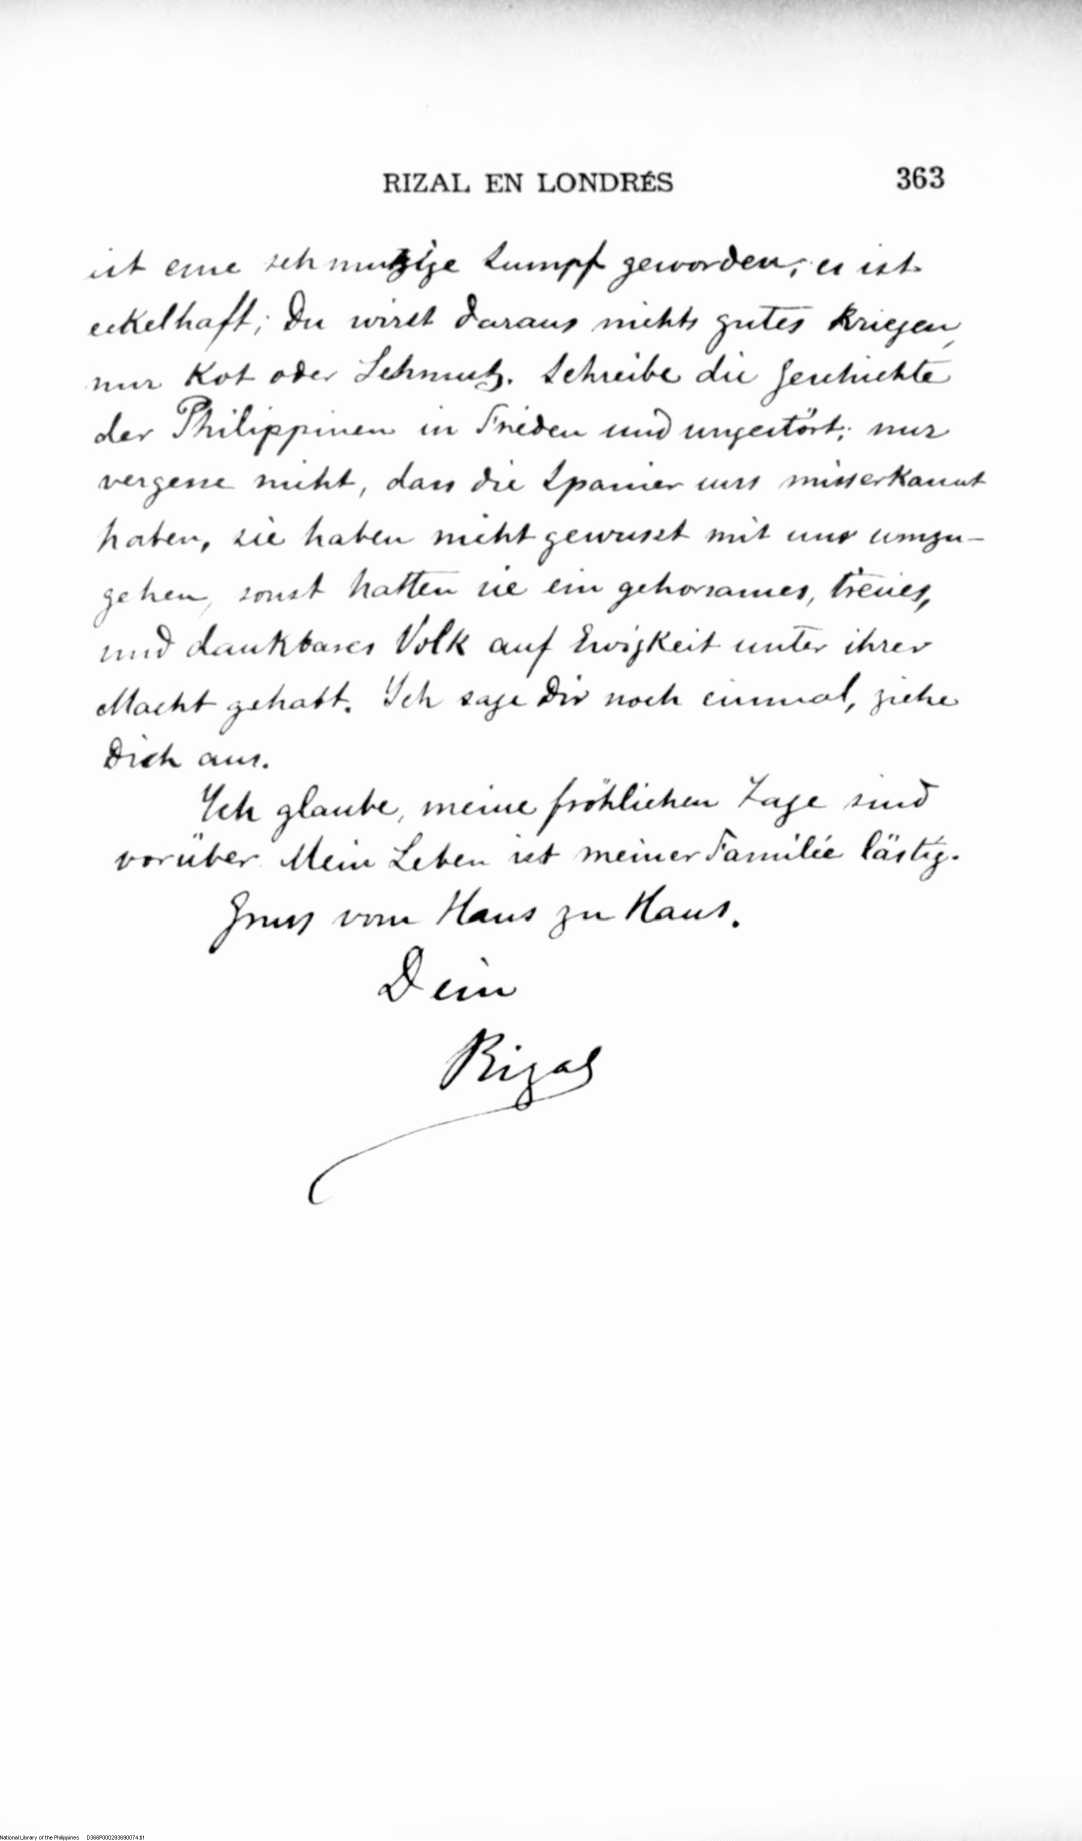 RIZAL EN LONDRÉS 363
ist eine schmutzige Sumpf geworden; es ist
eckelhaft; Du wirst daraus nichts gutes kriegen,
nur Kot oder Schmutz. Schreibe die Geschichte
der Philippinen in Frieden und ungestört; nur
vergesse nicht, dass die Spanier uns misserkannt
haben, sie haben nicht gewusst mit uns umzu-
gehen, sonst hatten sie ein gehorsames, treues,
und dankbares Volk auf Ewigkeit unter ihrer
Macht gehabt. Ich sage Dir noch einmal, ziehe
Dich aus.
Ich glaube, meine fröhlichen Tage sind
vorüber. Mein Leben ist meiner Familie lästig.
Gruss vom Haus zu Haus.
Dein
Rizal
National Library of the Philippines D366P000293690074.tif